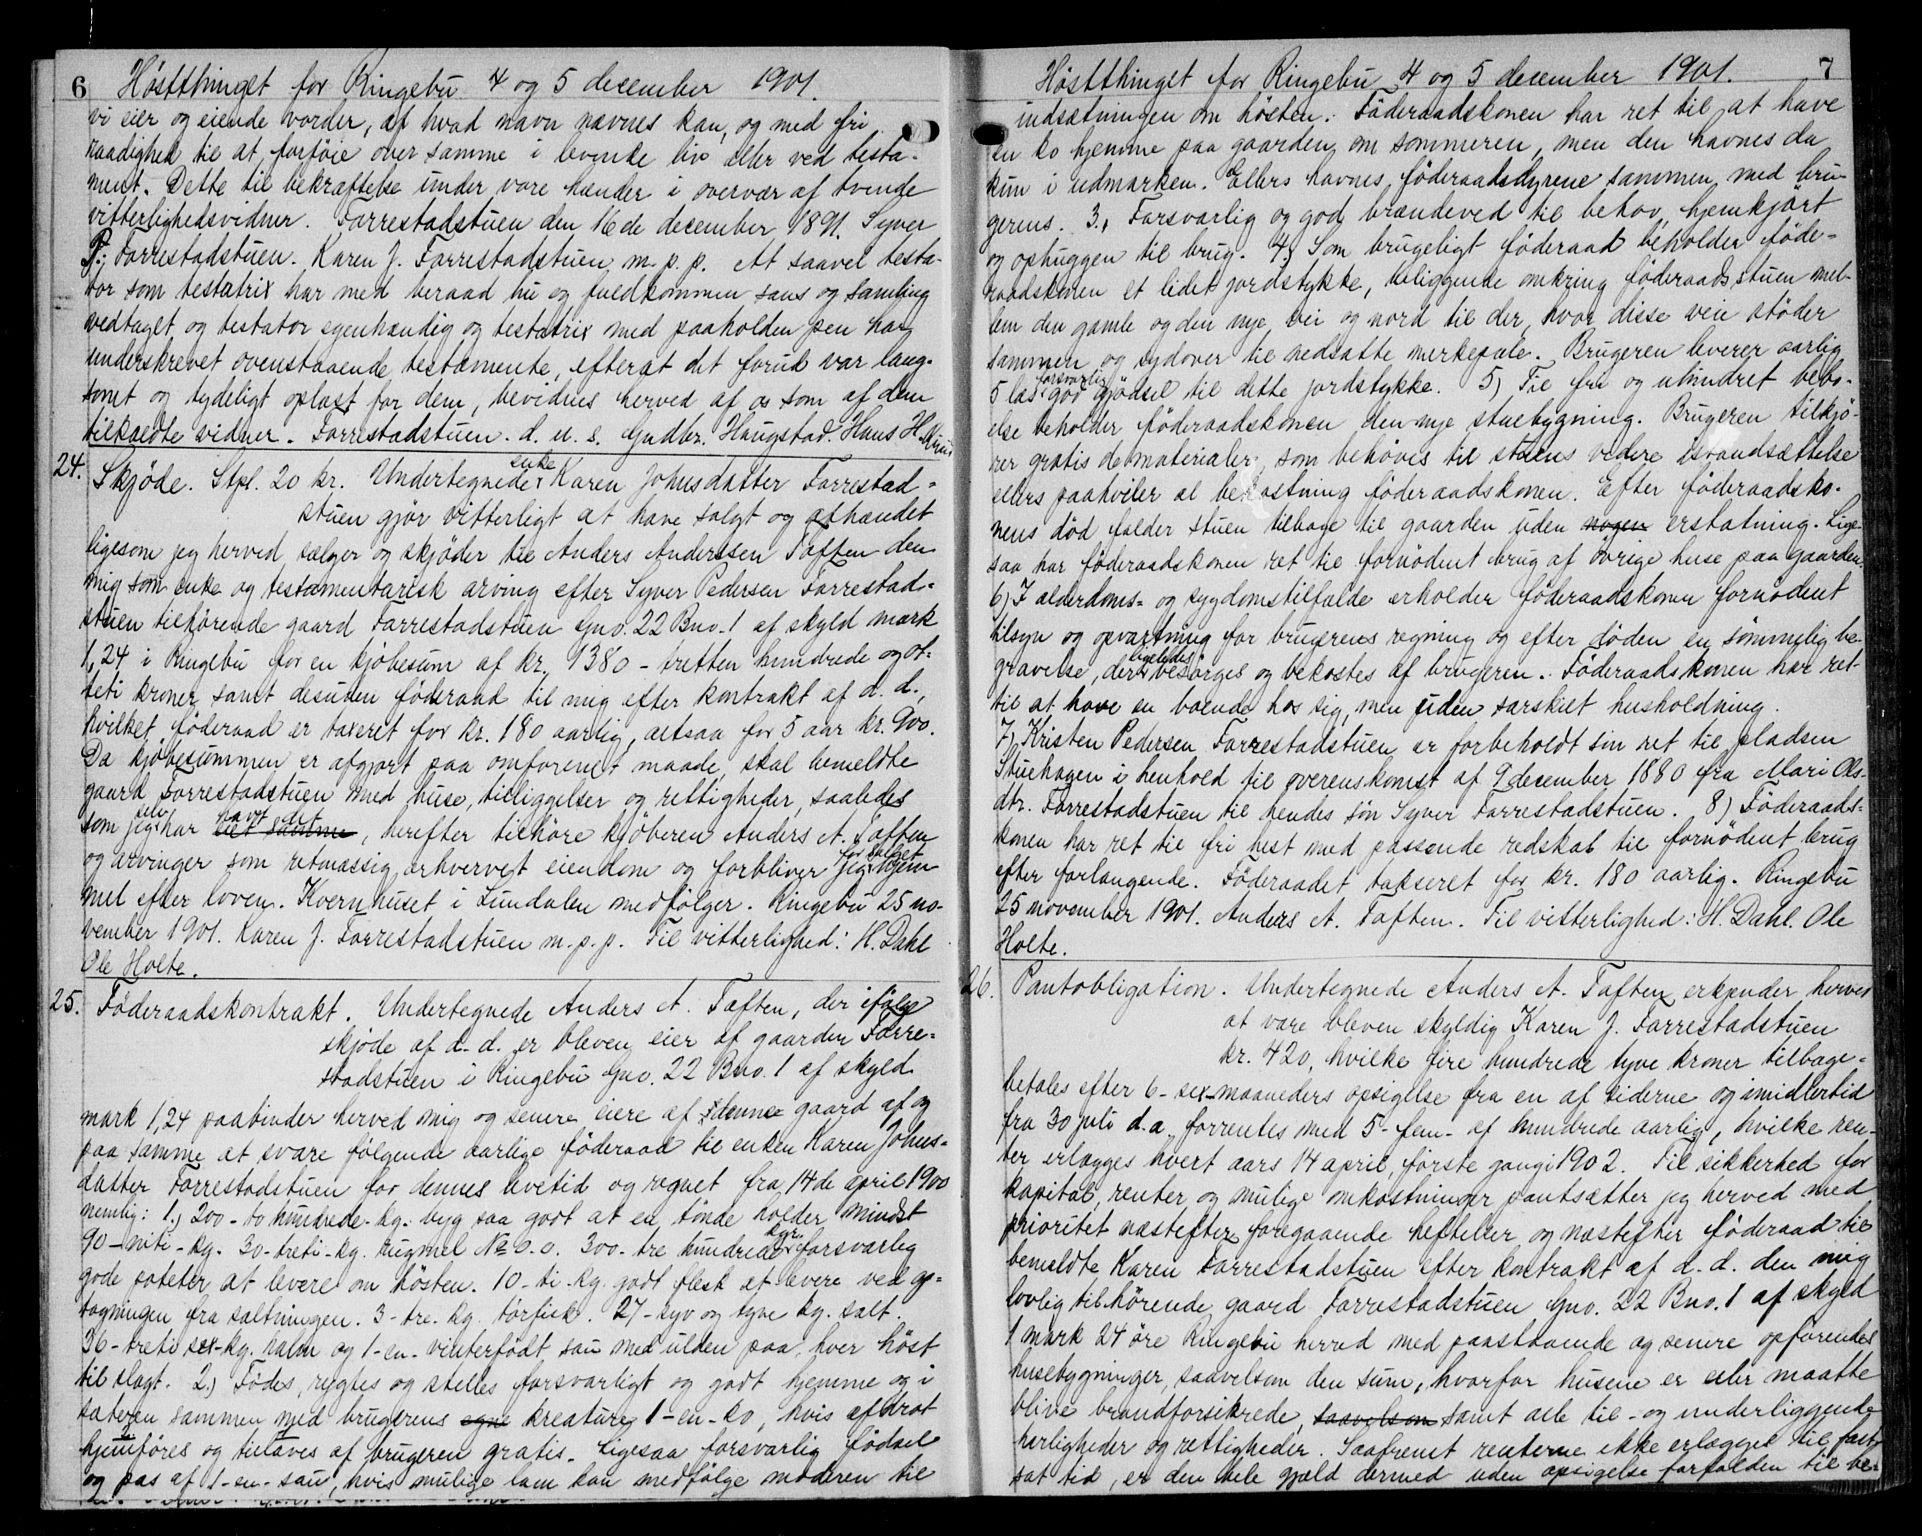 6 Høstthinget for Ringebu 4 og 5 december 1901.
vi eier og eiende vorder, af hvad navn nævnes kan, og med fri
raadighed til at forføie over samme i levende liv eller ved testa-
ment. Dette til bekræftelse under vore hænder i overvær af tvende
vitterlighedsvidner. Forrestadstuen den 16de december 1891. Syver
P. Forrestadstuen. Karen J. Forrestadstuen m. p. p. At saavel testa-
tor som testatrix har med beraad hu og fuldkommen sans og samling
vedtaget og testator egenhændig og testatrix med paaholden pen har
underskrevet ovenstaaende testamente, efterat det forud var lang-
somt og tydeligt oplæst for dem, bevidnes herved af os som af dem
tilkaldte vidner. Forrestadstuen. d. u. s. Gudbr. Haugstad. Hans H.
24. Skjøde. Stpl. 20 kr. Undertegnede enke Karen Johnsdatter Forrestad-
stuen gjør vitterligt at have solgt og afhændet
ligesom jeg herved sælger og skjøder til Anders Anderssen Taften den
mig som enke og testamentarisk arving efter Syver Pedersen Forrestad-
stuen tilhørende gaard Forrestadstuen Gno. 22 Bno. 1 af skyld mark
1,24 i Ringebu for en kjøbesum af kr. 1380 - tretten hundrede og ot-
teti kroner samt desuden føderaad til mig efter kontrakt af d. d.,
hvilket føderaad er taxeret for kr. 180 aarlig, altsaa for 5 aar kr. 900.
Da kjøbesummen er afgjort paa omforenet maade, skal bemeldte
gaard Forrestadstuen med huse, tilliggelser og rettigheder, saaledes
som jeg selv har havt det, herefter tilhøre kjøberen Anders A. Taften
og arvinger som retmæssig erhvervet eiendom og forbliver jeg for salget hjem-
mel efter loven. Kvernhuset i Lundalen medfølger. Ringebu 25 no-
vember 1901. Karen J. Forrestadstuen m. p. p. Til vitterlighed: H. Dahl
Ole Holte.
25. Føderaadskontrakt. Undertegnede Anders A. Taften, der ifølge
skjøde af d. d. er bleven eier af gaarden Forre-
stadstuen i Ringebu Gno. 22 Bno. 1 af skyld
mark 1,24 paabinder herved mig og senere eiere af denne gaard af og
paa samme at svare følgende aarlige føderaad til enken Karen Johns-
datter Forrestadstuen for dennes levetid og regnet fra 14de april 1900
nemlig: 1.) 200 - to hundrede - kg. byg saa godt at en tønde holder mindst
90 - niti - kg. 30 - treti - kg. rugmel No 0.0. 300 - tre hundrede - kgr. forsvarlig
gode poteter at levere om høsten. 10 - ti - kg. godt flesk at levere ved op-
tagningen fra saltningen. 3 - tre - kg. tørfisk. 27 - syv og tyve kg. salt.
36 - treti sex - kg. halm og 1 - en - vinterfødt sau med ulden paa, hver høst
til slagt. 2.) Fødes, røgtes og stelles forsvarligt og godt hjemme og i
sæteren sammen med brugerens egne kreaturer 1 - en - ko, hvis afdrot
hjemføres og tillaves af brugeren gratis. Ligesaa forsvarlig fødsel
og pas af 1 - en - sau, hvis mulige lam kan medfølge moderen til
Høstthinget for Ringebu 4 og 5 december 1901. 7
indsætningen om høsten. Føderaadskonen har ret til at have
en ko hjemme paa gaarden om sommeren, men den havnes da
kun i udmarken. Ellers havnes føderaadsdyrene sammen med bru-
gerens. 3. Forsvarlig og god brændeved til behov, hjemkjørt
og ophuggen til brug. 4.) Som brugeligt føderaad beholder føde-
raadskonen et lidet jordstykke, beliggende omkring føderaadsstuen mel-
lem den gamle og den nye vei og nord til der, hvor disse veie støder
sammen og sydover til nedsatte merkepæle. Brugeren leverer aarlig
5 læs forsvarlig god gjødsel til dette jordstykke. 5) Til fri og uhindret bebo-
else beholder føderaadskonen den nye stuebygning. Brugeren tilkjø-
rer gratis de materialer, som behøves til stuens videre istandsættelse
ellers paahviler al bekostning føderaadskonen. Efter føderaadsko-
nens død falder stuen tilbage til gaarden uden nogen erstatning. Lige-
saa har føderaadskonen ret til fornødent brug af øvrige huse paa gaarden.
6) I alderdoms- og sygdomstilfælde erholder føderaadskonen fornødent
tilsyn og opvartning for brugerens regning og efter døden en sømmelig be-
gravelse, der ligeledes besørges og bekostes af brugeren. Føderaadskonen har ret
til at have en boende hos sig, men uden særskilt husholdning.
7) Kristen Pedersen Forrestadstuen er forbeholdt sin ret til pladsen
Stuehagen i henhold til overenskomst af 9 december 1880 fra Mari Ols-
dtr. Forrestadstuen til hendes søn Syver Forrestadstuen. 8) Føderaads-
konen har ret til fri hest med passende redskab til fornødent brug
efter forlangende. Føderaadet takseret for kr. 180 aarlig. Ringebu
25 november 1901. Anders A. Taften. Til vitterlighed: H. Dahl. Ole
Holte.
26. Pantobligation. Undertegnede Anders A. Taften erkjender herved
at være bleven skyldig Karen J. Forrestadstuen
kr. 420, hvilke fire hundrede tyve kroner tilbage-
betales efter 6 - sex - maaneders opsigelse fra en af siderne og imidlertid
fra 30 juli d. a. forrentes med 5 - fem - af hundrede aarlig, hvilke ren-
ter erlægges hvert aars 14 april, første gang i 1902. Til sikkerhed for
kapital, renter og mulige omkostninger pantsætter jeg herved med
prioritet næstefter foregaaende heftelser og næstefter føderaad til
bemeldte Karen Forrestadstuen efter kontrakt af d. d. den mig
lovlig tilhørende gaard Forrestadstuen Gno. 22 Bno. 1 af skyld
1 mark 24 øre Ringebu herred med paastaaende og senere opførendes
husebygninger, saavelsom den sum, hvorfor husene er eller maatte
blive brandforsikrede, saavelsom samt alle til- og underliggende
herligheder og rettigheder. Saafremt renterne ikke erlægges til fast-
sat tid, er den hele gjæld dermed uden opsigelse forfalden til be-